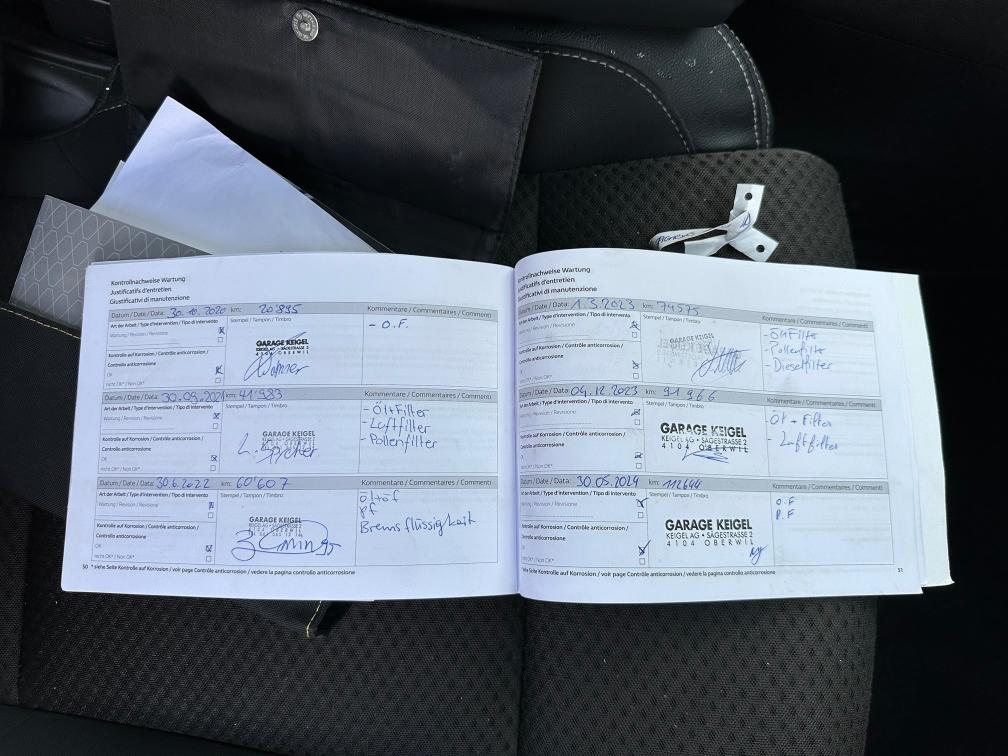 Kontrollnachweise Wartung
Justificatifs d'entretien
Giustificativi di manutenzione
Datum / Date / Data: 30.10.2020 km: 20'895
Kommentare / Commentaires / Commenti
Art der Arbeit / Type d'intervention / Tipo di intervento
Stempel / Tampon / Timbro
Wartung / Revision / Revisione
- O.F.
Kontrolle auf Korrosion / Contrôle anticorrosion / Controllo anticorrosione
OK
nicht OK* / Non OK*
GARAGE KEIGEL
KEIGEL AG • SÄGESTRASSE 2
4104 OBERWIL
Datum / Date / Data: 30.09.2021 km: 41'983
Kommentare / Commentaires / Commenti
Art der Arbeit / Type d'intervention / Tipo di intervento
Stempel / Tampon / Timbro
Wartung / Revision / Revisione
- Öl+Filter
- Luftfilter
- Pollenfilter
Kontrolle auf Korrosion / Contrôle anticorrosion / Controllo anticorrosione
OK
nicht OK* / Non OK*
GARAGE KEIGEL
KEIGEL AG • SÄGESTRASSE 2
4104 OBERWIL
Datum / Date / Data: 30.6.2022 km: 60'607
Kommentare / Commentaires / Commenti
Art der Arbeit / Type d'intervention / Tipo di intervento
Stempel / Tampon / Timbro
Wartung / Revision / Revisione
öl+öf
pf
Bremsflüssigkeit
Kontrolle auf Korrosion / Contrôle anticorrosion / Controllo anticorrosione
OK
nicht OK* / Non OK*
GARAGE KEIGEL
KEIGEL AG • SÄGESTRASSE 2
4104 OBERWIL
50 * siehe Seite Kontrolle auf Korrosion / voir page Contrôle anticorrosion / vedere la pagina controllo anticorrosione
Kontrollnachweise Wartung
Justificatifs d'entretien
Giustificativi di manutenzione
Datum / Date / Data: 1.3.2023 km: 74575
Kommentare / Commentaires / Commenti
Art der Arbeit / Type d'intervention / Tipo di intervento
Stempel / Tampon / Timbro
Wartung / Revision / Revisione
- Pollenfilter
- Dieselfilter
Kontrolle auf Korrosion / Contrôle anticorrosion / Controllo anticorrosione
OK
nicht OK* / Non OK*
GARAGE KEIGEL
Datum / Date / Data: 04.12.2023 km: 91966
Kommentare / Commentaires / Commenti
Art der Arbeit / Type d'intervention / Tipo di intervento
Stempel / Tampon / Timbro
Wartung / Revision / Revisione
- Öl + Filter
- Luftfilter
Kontrolle auf Korrosion / Contrôle anticorrosion / Controllo anticorrosione
OK
nicht OK* / Non OK*
GARAGE KEIGEL
KEIGEL AG • SÄGESTRASSE 2
4104 OBERWIL
Datum / Date / Data: 30.05.2024 km: 112644
Kommentare / Commentaires / Commenti
Art der Arbeit / Type d'intervention / Tipo di intervento
Stempel / Tampon / Timbro
Wartung / Revision / Revisione
O.F
P.F
Kontrolle auf Korrosion / Contrôle anticorrosion / Controllo anticorrosione
OK
nicht OK* / Non OK*
GARAGE KEIGEL
KEIGEL AG • SÄGESTRASSE 2
4104 OBERWIL
*siehe Seite Kontrolle auf Korrosion / voir page Contrôle anticorrosion / vedere la pagina controllo anticorrosione
51